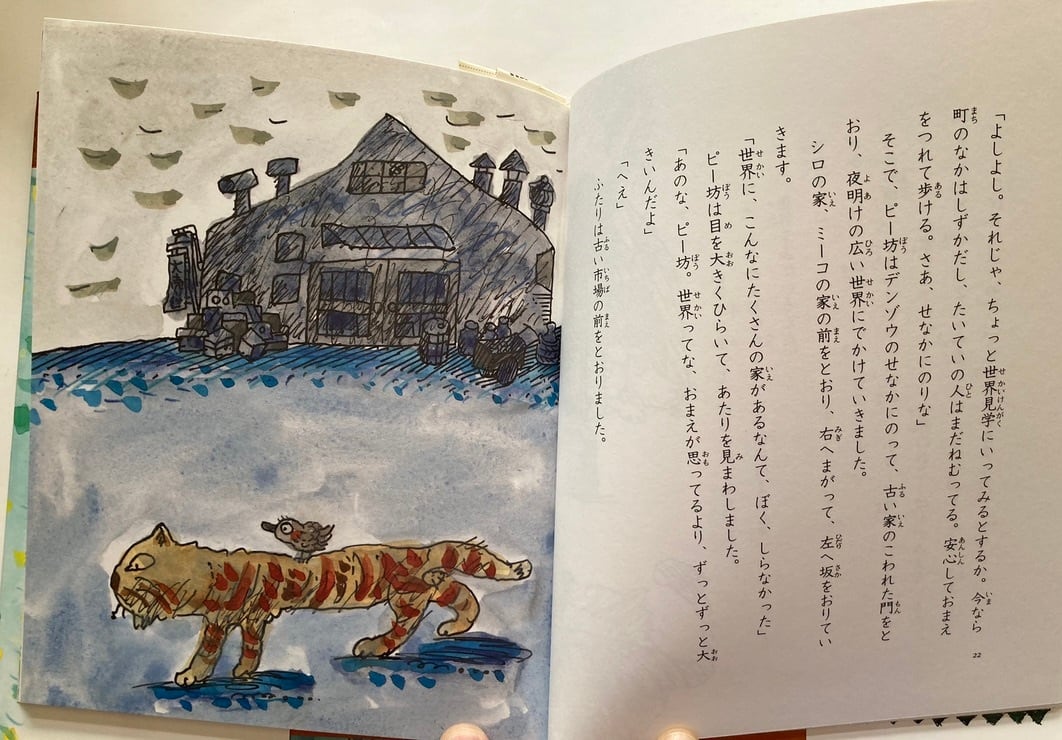 「よしよし。それじゃ、ちょっと世界見学にいってみるとするか。今なら
町のなかはしずかだし、たいていの人はまだねむってる。安心しておまえ
をつれて歩ける。さあ、せなかにのりな」
そこで、ピー坊はデンゾウのせなかにのって、古い家のこわれた門をと
おり、夜明けの広い世界にでかけていきました。
シロの家、ミーコの家の前をとおり、右へまがって、左へ坂をおりてい
きます。
「世界に、こんなにたくさんの家があるなんて、ぼく、しらなかった」
ピー坊は目を大きくひらいて、あたりを見まわしました。
「あのな、ピー坊。世界ってな、おまえが思ってるより、ずっとずっと大
きいんだよ」
「へえ」
ふたりは古い市場の前をとおりました。
22